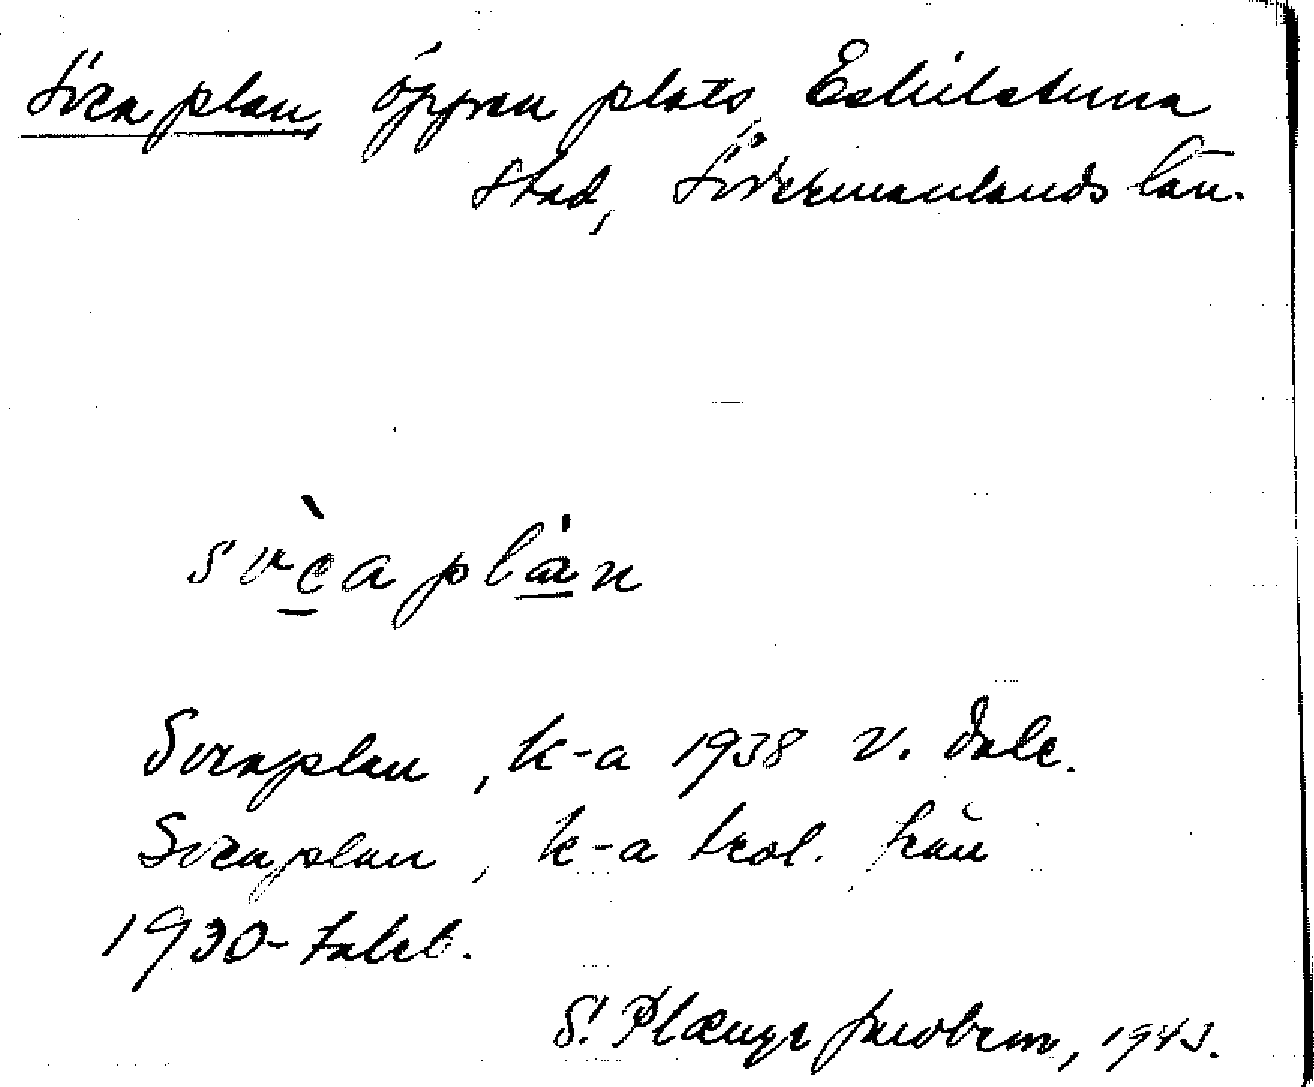 Sveaplan, öppen plats, Eskilstuna
stad, Södermanlands län.
svèaplán
Sveaplan, k-a 1938 v. Dale.
Sveaplan, k-a trol. från
1930-talet.
S. Jacobson, 1943.